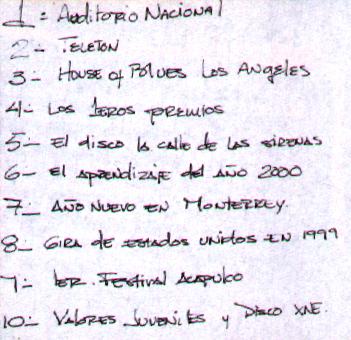 1= Auditorio Nacional
2- Teleton
3- House of Blues Los Angeles
4- Los 1eros premios
5- El disco la calle de las sirenas
6- El aprendizaje del año 2000
7- Año nuevo en Monterrey.
8- Gira de estados unidos en 1999
9- 1er. Festival Acapulco
10- Valores Juveniles y Disco XNE.